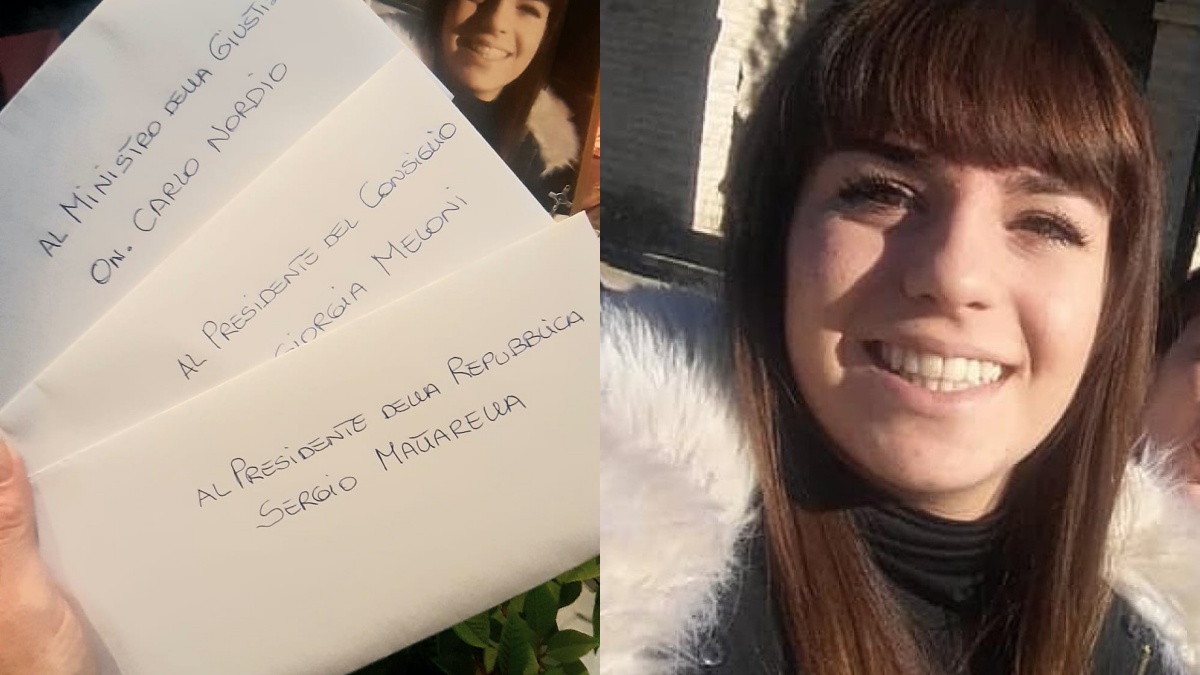 AL MINISTRO DELLA GIUSTI
ON. CARLO NORDIO
AL PRESIDENTE DEL CONSIGLIO
GIORGIA MELONI
AL PRESIDENTE DELLA REPUBBLICA
SERGIO MATTARELLA